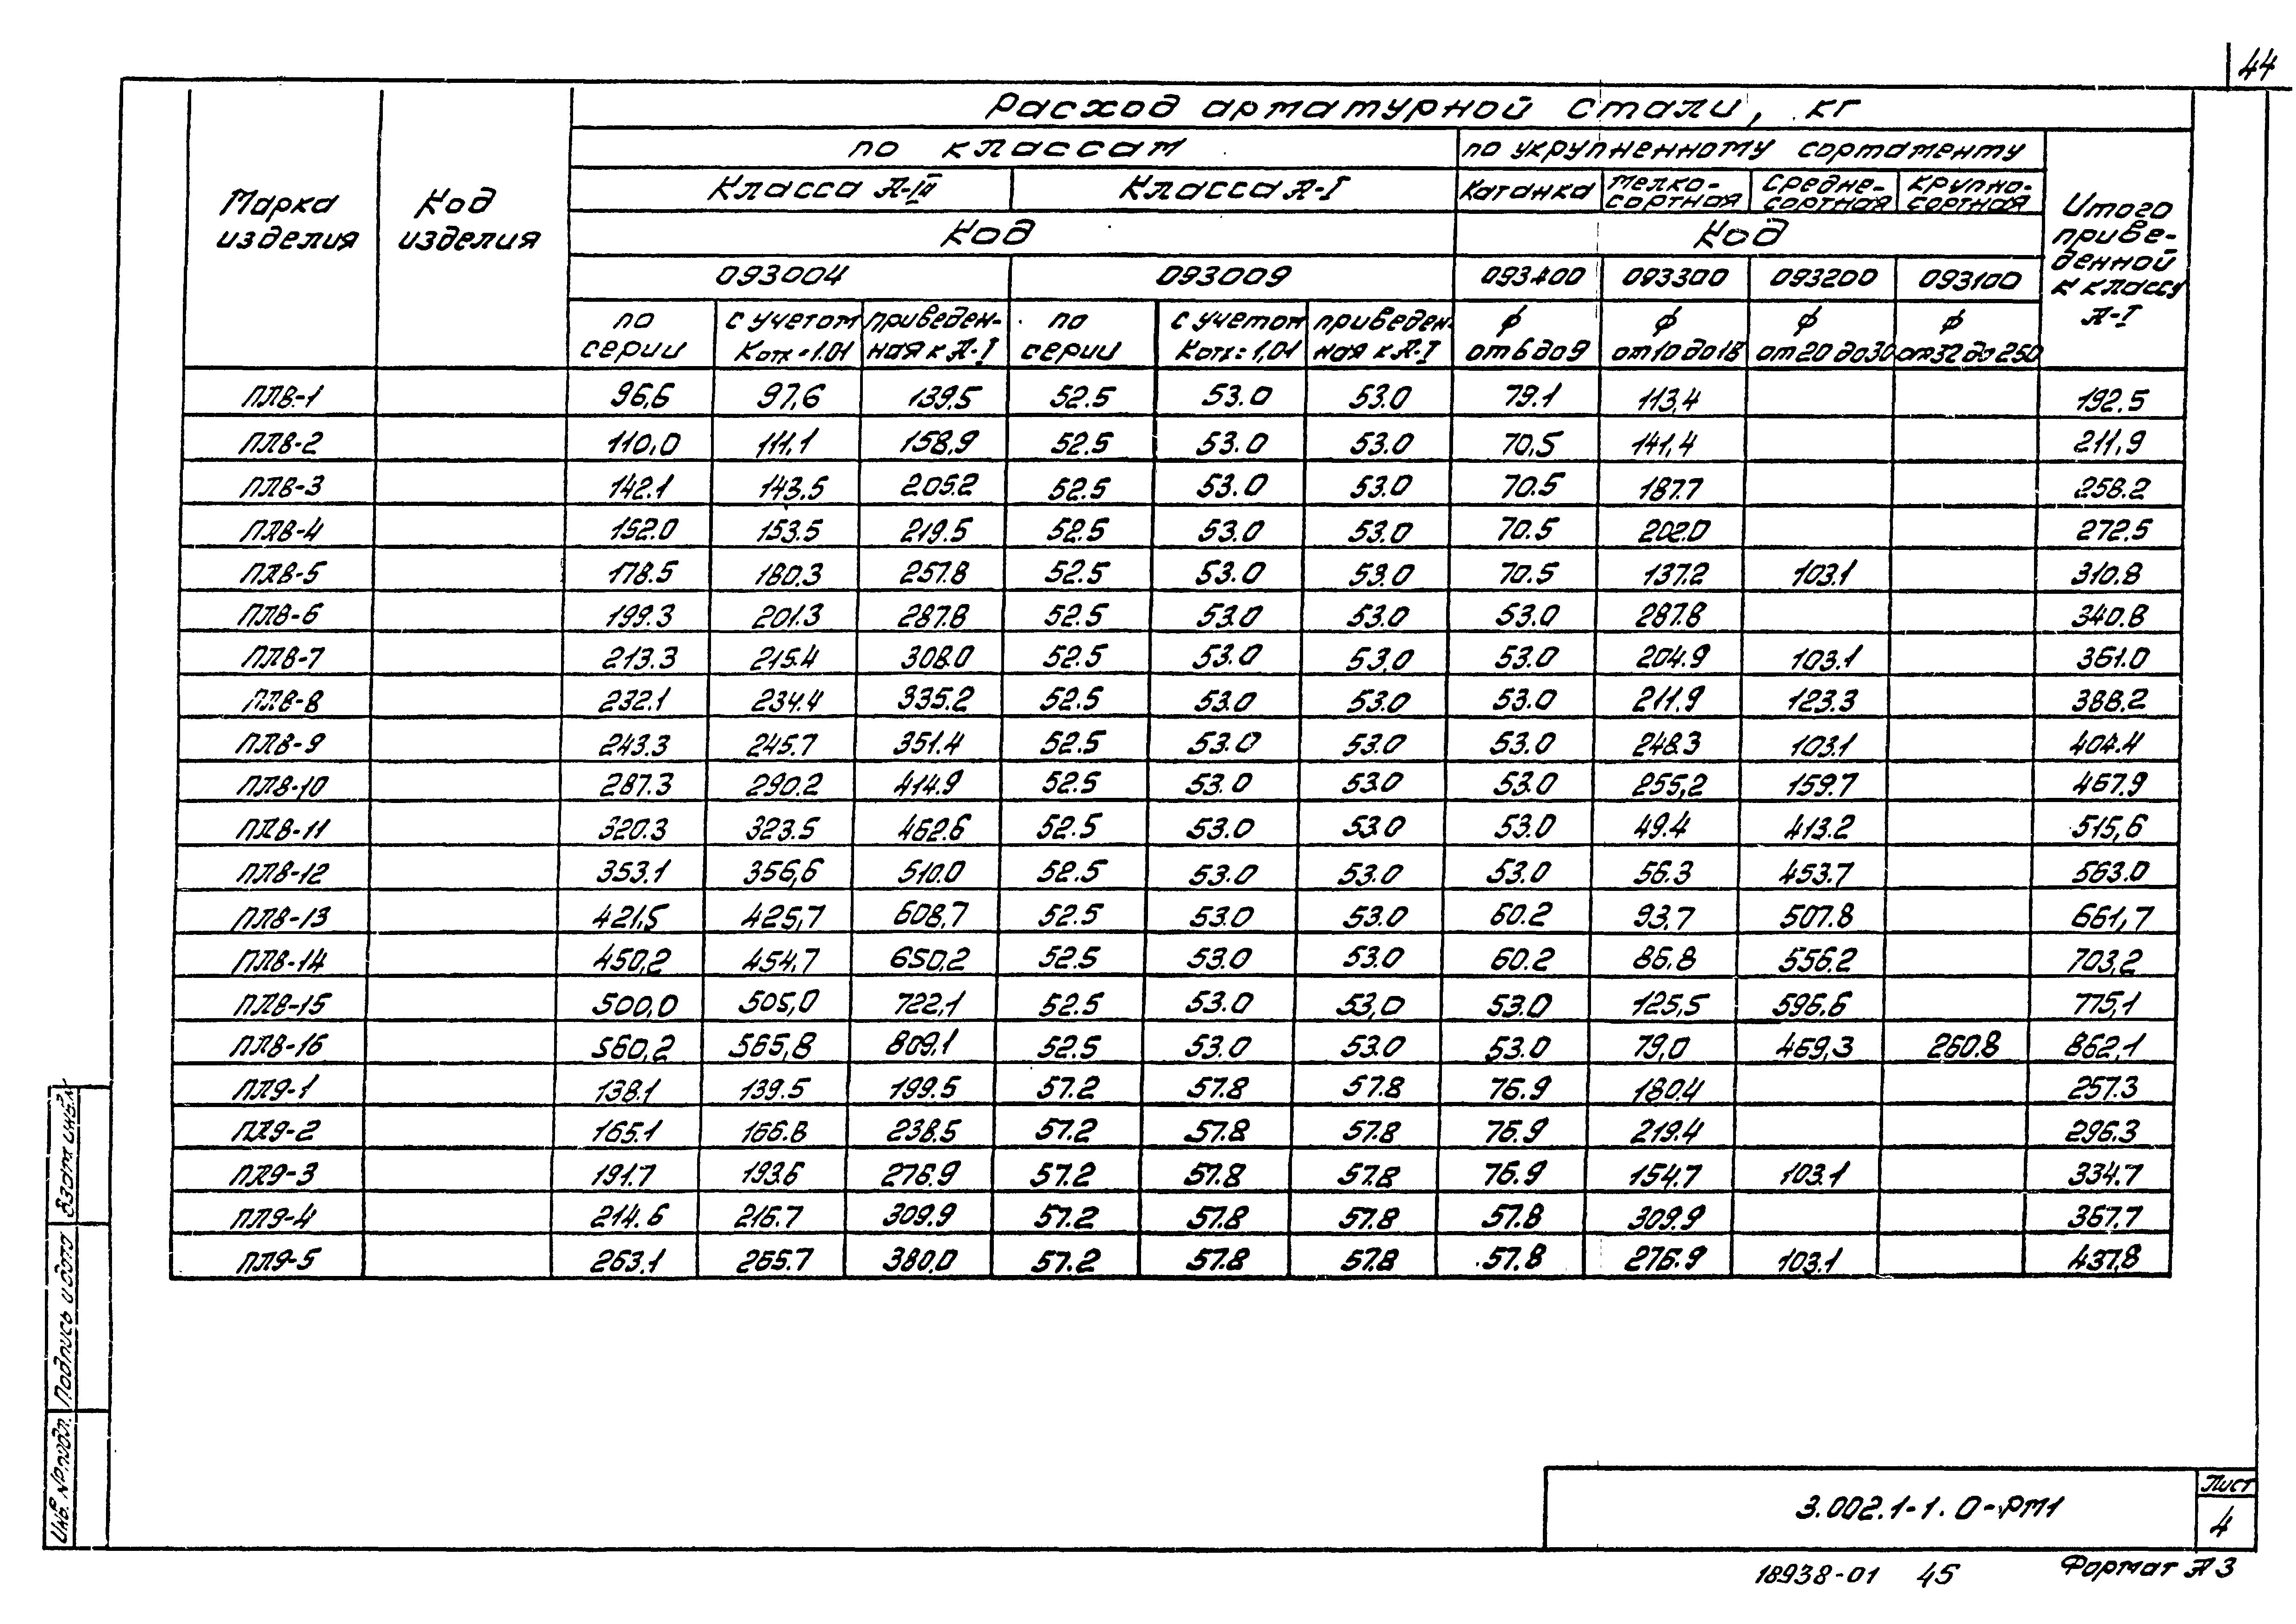 44
Расход арматурной стали, кг
по классам
по укрупненному сортаменту
Марка изделия
Код изделия
Класса А-III
Класса А-I
Катанка
мелко-сортная
средне-сортная
крупно-сортная
Итого приведенной к классу А-I
Код
Код
093004
093009
093400
093300
093200
093100
по серии
с учетом Котх=1.01
приведенная к А-I
по серии
с учетом Котх=1,01
приведенная к А-I
ϕ от 6 до 9
ϕ от 10 до 18
ϕ от 20 до 30
ϕ от 32 до 250
ПЛ8-1 96,6 97,6 139.5 52.5 53.0 53.0 79.1 113,4 192.5
ПЛ8-2 110,0 111,1 158,9 52.5 53.0 53.0 70,5 141,4 211,9
ПЛ8-3 142.1 143.5 205.2 52.5 53.0 53.0 70.5 187.7 258.2
ПЛ8-4 152.0 153.5 219.5 52.5 53.0 53.0 70.5 202.0 272.5
ПЛ8-5 178.5 180.3 257.8 52.5 53.0 53.0 70.5 137.2 103.1 310.8
ПЛ8-6 199.3 201.3 287.8 52.5 53.0 53.0 53.0 287.8 340.8
ПЛ8-7 213.3 215.4 308.0 52.5 53.0 53,0 53.0 204.9 103.1 361.0
ПЛ8-8 232.1 234.4 335.2 52.5 53.0 53.0 53.0 211.9 123.3 388.2
ПЛ8-9 243.3 245.7 351.4 52.5 53.0 53.0 53.0 248.3 103.1 404.4
ПЛ8-10 287.3 290.2 414.9 52.5 53.0 53.0 53.0 255,2 159.7 467.9
ПЛ8-11 320.3 323.5 462.6 52.5 53.0 53.0 53.0 49.4 413.2 515,6
ПЛ8-12 353.1 356,6 510.0 52.5 53.0 53.0 53.0 56.3 453.7 563.0
ПЛ8-13 421,5 425,7 608,7 52.5 53.0 53.0 60.2 93,7 507.8 661,7
ПЛ8-14 450,2 454,7 650,2 52.5 53.0 53.0 60.2 86.8 556.2 703,2
ПЛ8-15 500,0 505,0 722,1 52.5 53.0 53,0 53.0 125,5 596.6 775,1
ПЛ8-16 560,2 565,8 809,1 52.5 53.0 53.0 53.0 79,0 469,3 260.8 862,1
ПЛ9-1 138.1 139.5 199.5 57.2 57.8 57.8 76.9 180.4 257.3
ПЛ9-2 165.1 166.8 238.5 57.2 57.8 57.8 76.9 219.4 296.3
ПЛ9-3 191.7 193.6 276.9 57.2 57.8 57.8 76.9 154.7 103.1 334.7
ПЛ9-4 214.6 216.7 309.9 57.2 57.8 57.8 57.8 309.9 367.7
ПЛ9-5 263.1 265.7 380,0 57.2 57.8 57.8 57.8 276.9 103.1 437.8
Взам инв.№
Подпись и дата
Инв. № подл.
3.002.1-1.0-РМ1
Лист
4
18938-01 45
Формат А3